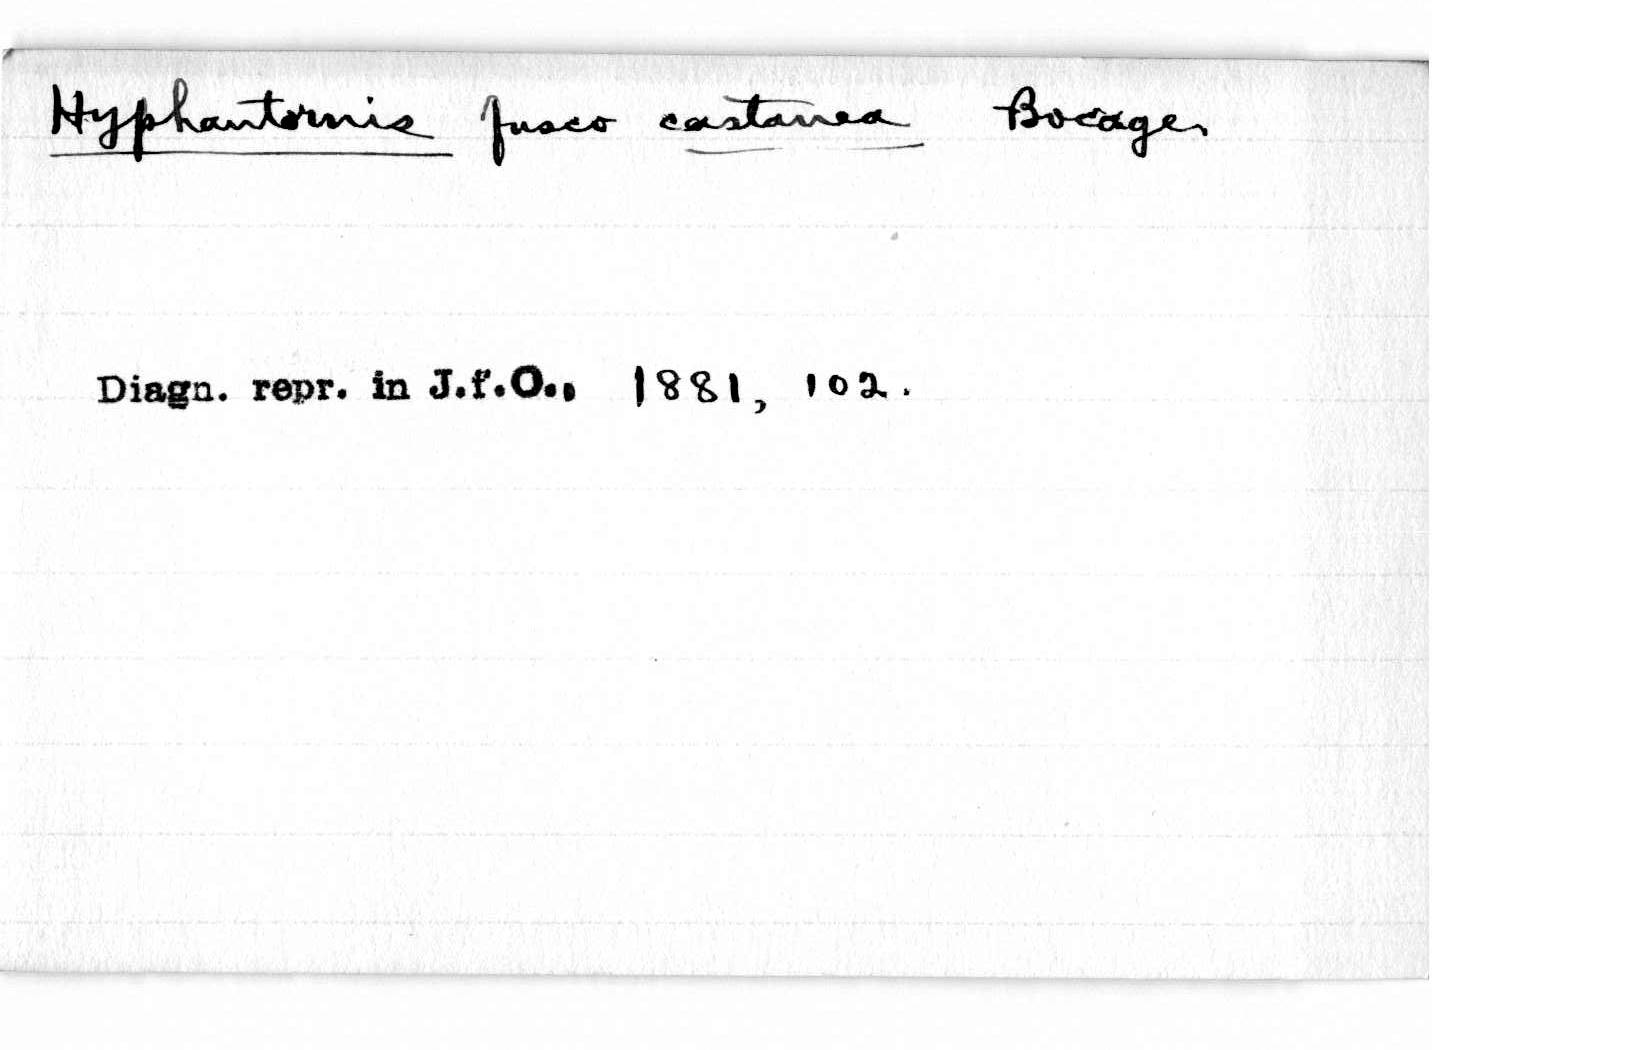 Hyphantornis fusco castanea Bocage.
Diagn. repr. in J.f.O., 1881, 102.